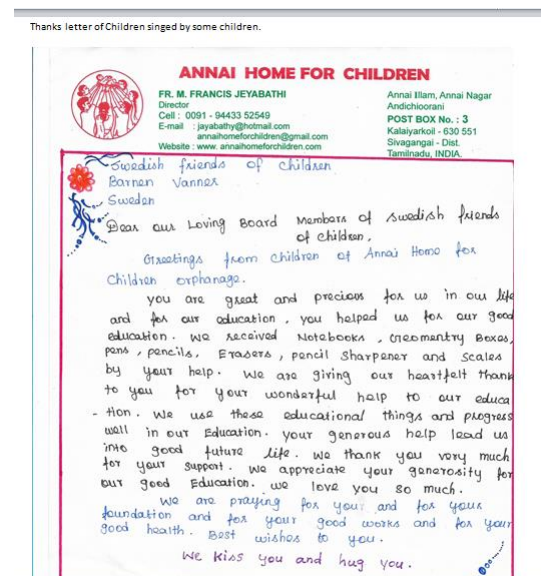 Thanks letter of Children singed by some children.
ANNAI HOME FOR CHILDREN
FR. M. FRANCIS JEYABATHI
Director
Cell : 0091 - 94433 52549
E-mail : jayabathy@hotmail.com
annaihomeforchildren@gmail.com
Website : www. annaihomeforchildren.com
Annai Illam, Annai Nagar
Andichioorani
POST BOX No. : 3
Kalaiyarkoil - 630 551
Sivagangai - Dist.
Tamilnadu, INDIA.
Swedish friends of children
Barnen Vanner
Sweden
Dear our Loving Board Members of swedish friends
of children,
Greetings from children of Annai Home for
Children orphanage.
you are great and precious for us in our life
and for our education, you helped us for our good
education. we received Notebooks, Geomentry Boxes,
pens, pencils, Erasers, pencil sharpener and scales
by your help. we are giving our heartfelt thank
to you for your wonderful help to our educa
- tion. we use these educational things and progress
well in our Education. your generous help lead us
into good future life. we thank you very much
for your support. we appreciate your generosity for
our good Education. we love you so much.
we are praying for you and for your
foundation and for your good works and for your
good health. Best wishes to you.
we kiss you and hug you.